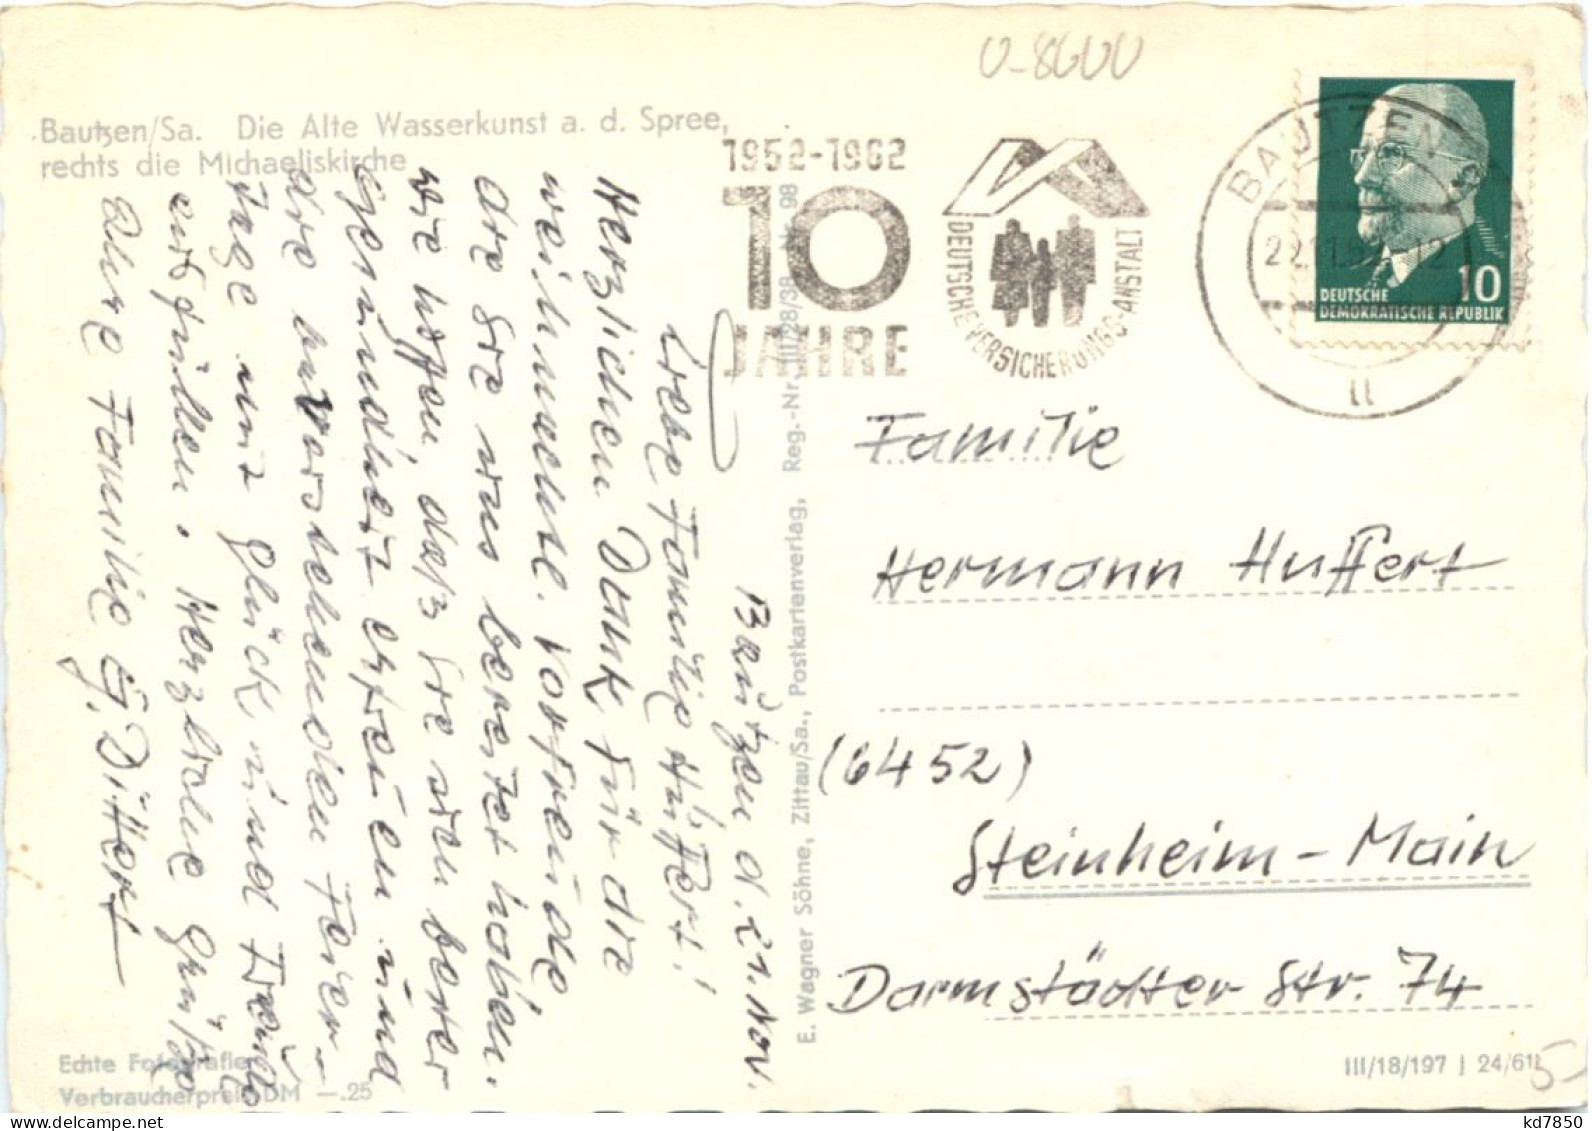 U-8600
Bautzen/Sa. Die Alte Wasserkunst a. d. Spree,
rechts die Michaeliskirche
1952-1962
10
JAHRE
DEUTSCHE VERSICHERUNGS-ANSTALT
BAUTZEN
11
10
DEUTSCHE
DEMOKRATISCHE REPUBLIK
Bautzen d. 21. Nov.
Liebe Familie Huffert!
Herzlichen Dank für die
weihnachtl. Vorfreude
die Sie uns bereitet haben.
Wir hoffen, daß Sie sich bester
Gesundheit erfreuen und
die bevorstehenden Feier-
tage mit Glück und Freude
erfüllen. Herzliche Grüße
Ihre Familie G. Dittert
E. Wagner Söhne, Zittau/Sa., Postkartenverlag, Reg.-Nr. III/28/38 Nr. 98
Familie
Hermann Huffert
(6452)
Steinheim-Main
Darmstädter Str. 74
Echte Fotografie
Verbraucherpreis DM —.25
III/18/197 J 24/61
5-
kd7850